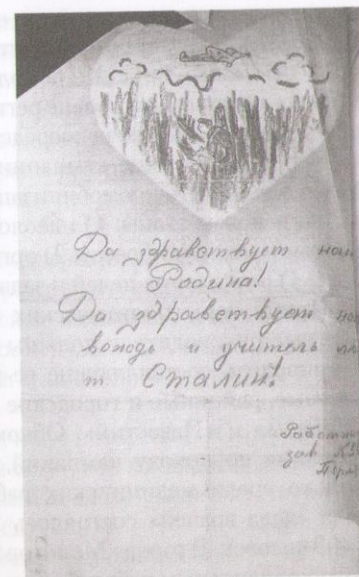 Да здравствует на
Родина!
Да здравствует на
вождь и учитель
т. Сталин!
Работни
зав.
Перм